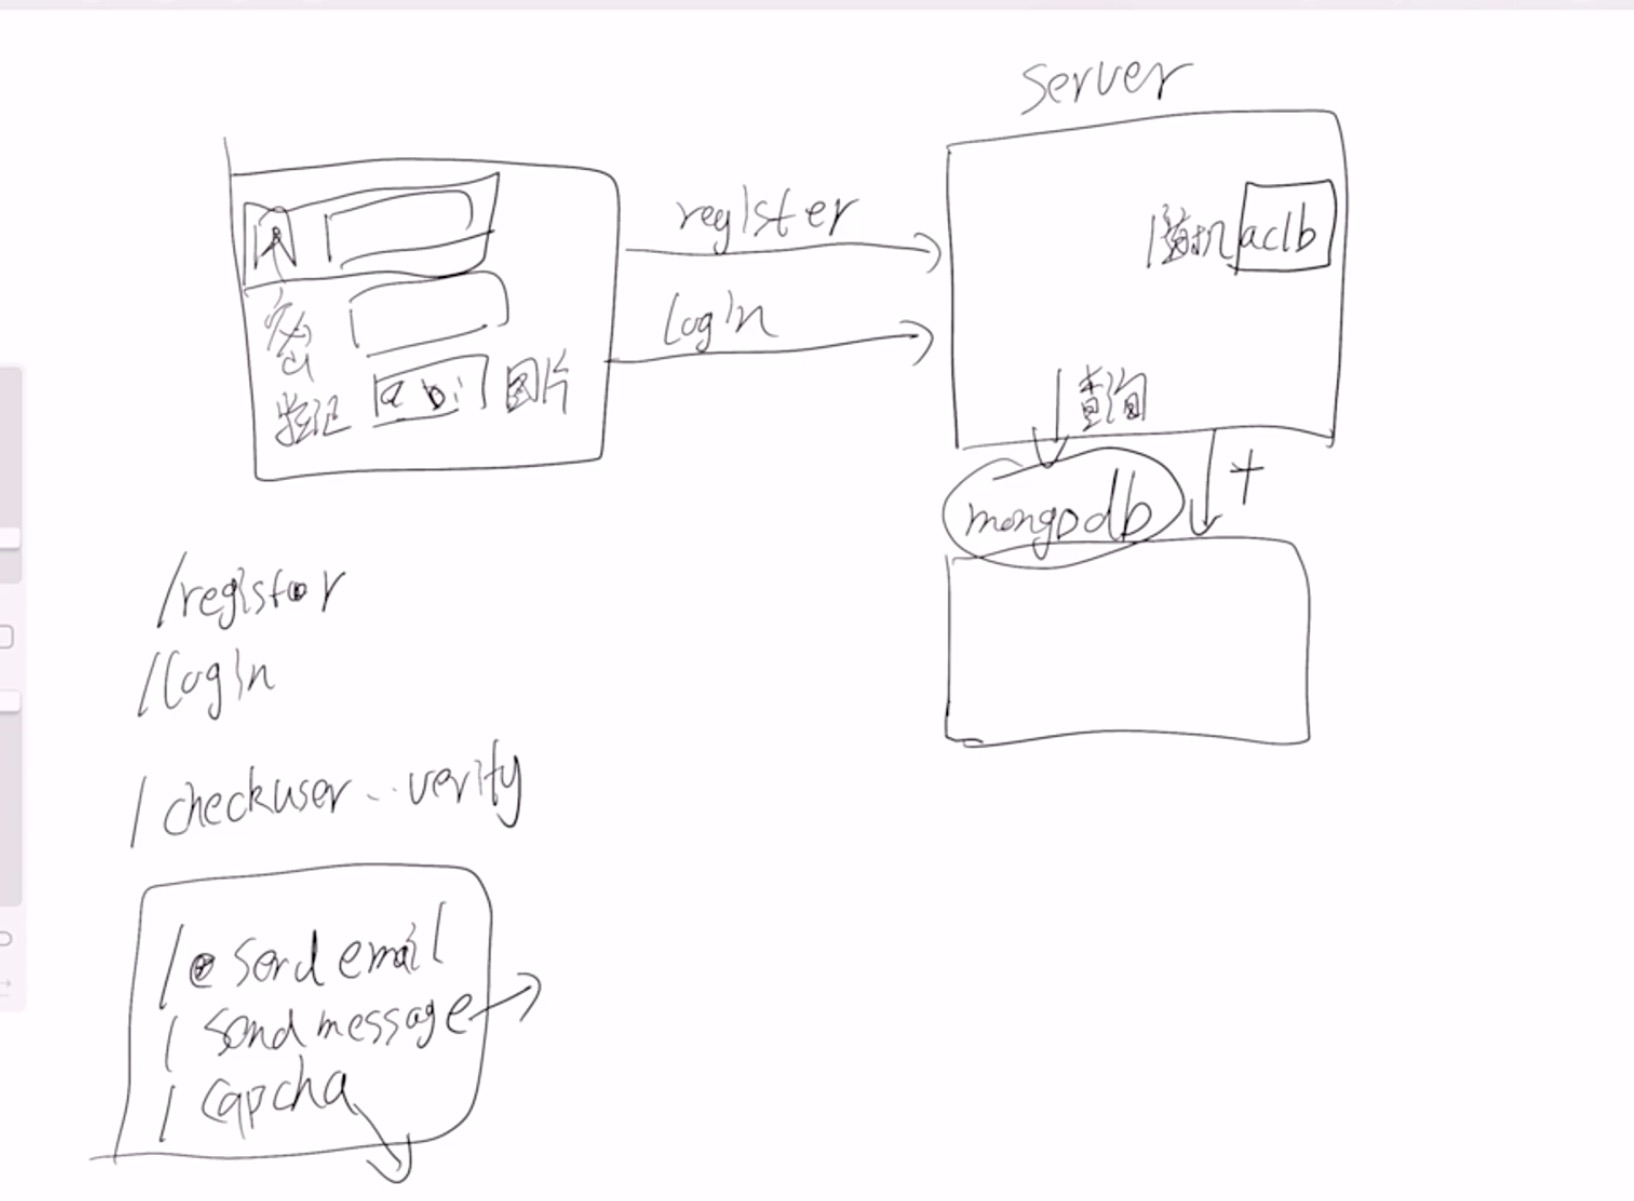 server
register
login
随机 aclb
密码
验证 a b 图片
查询
+
mongodb
/register
/login
/checkuser...verify
/sendemail
/sendmessage
/capcha